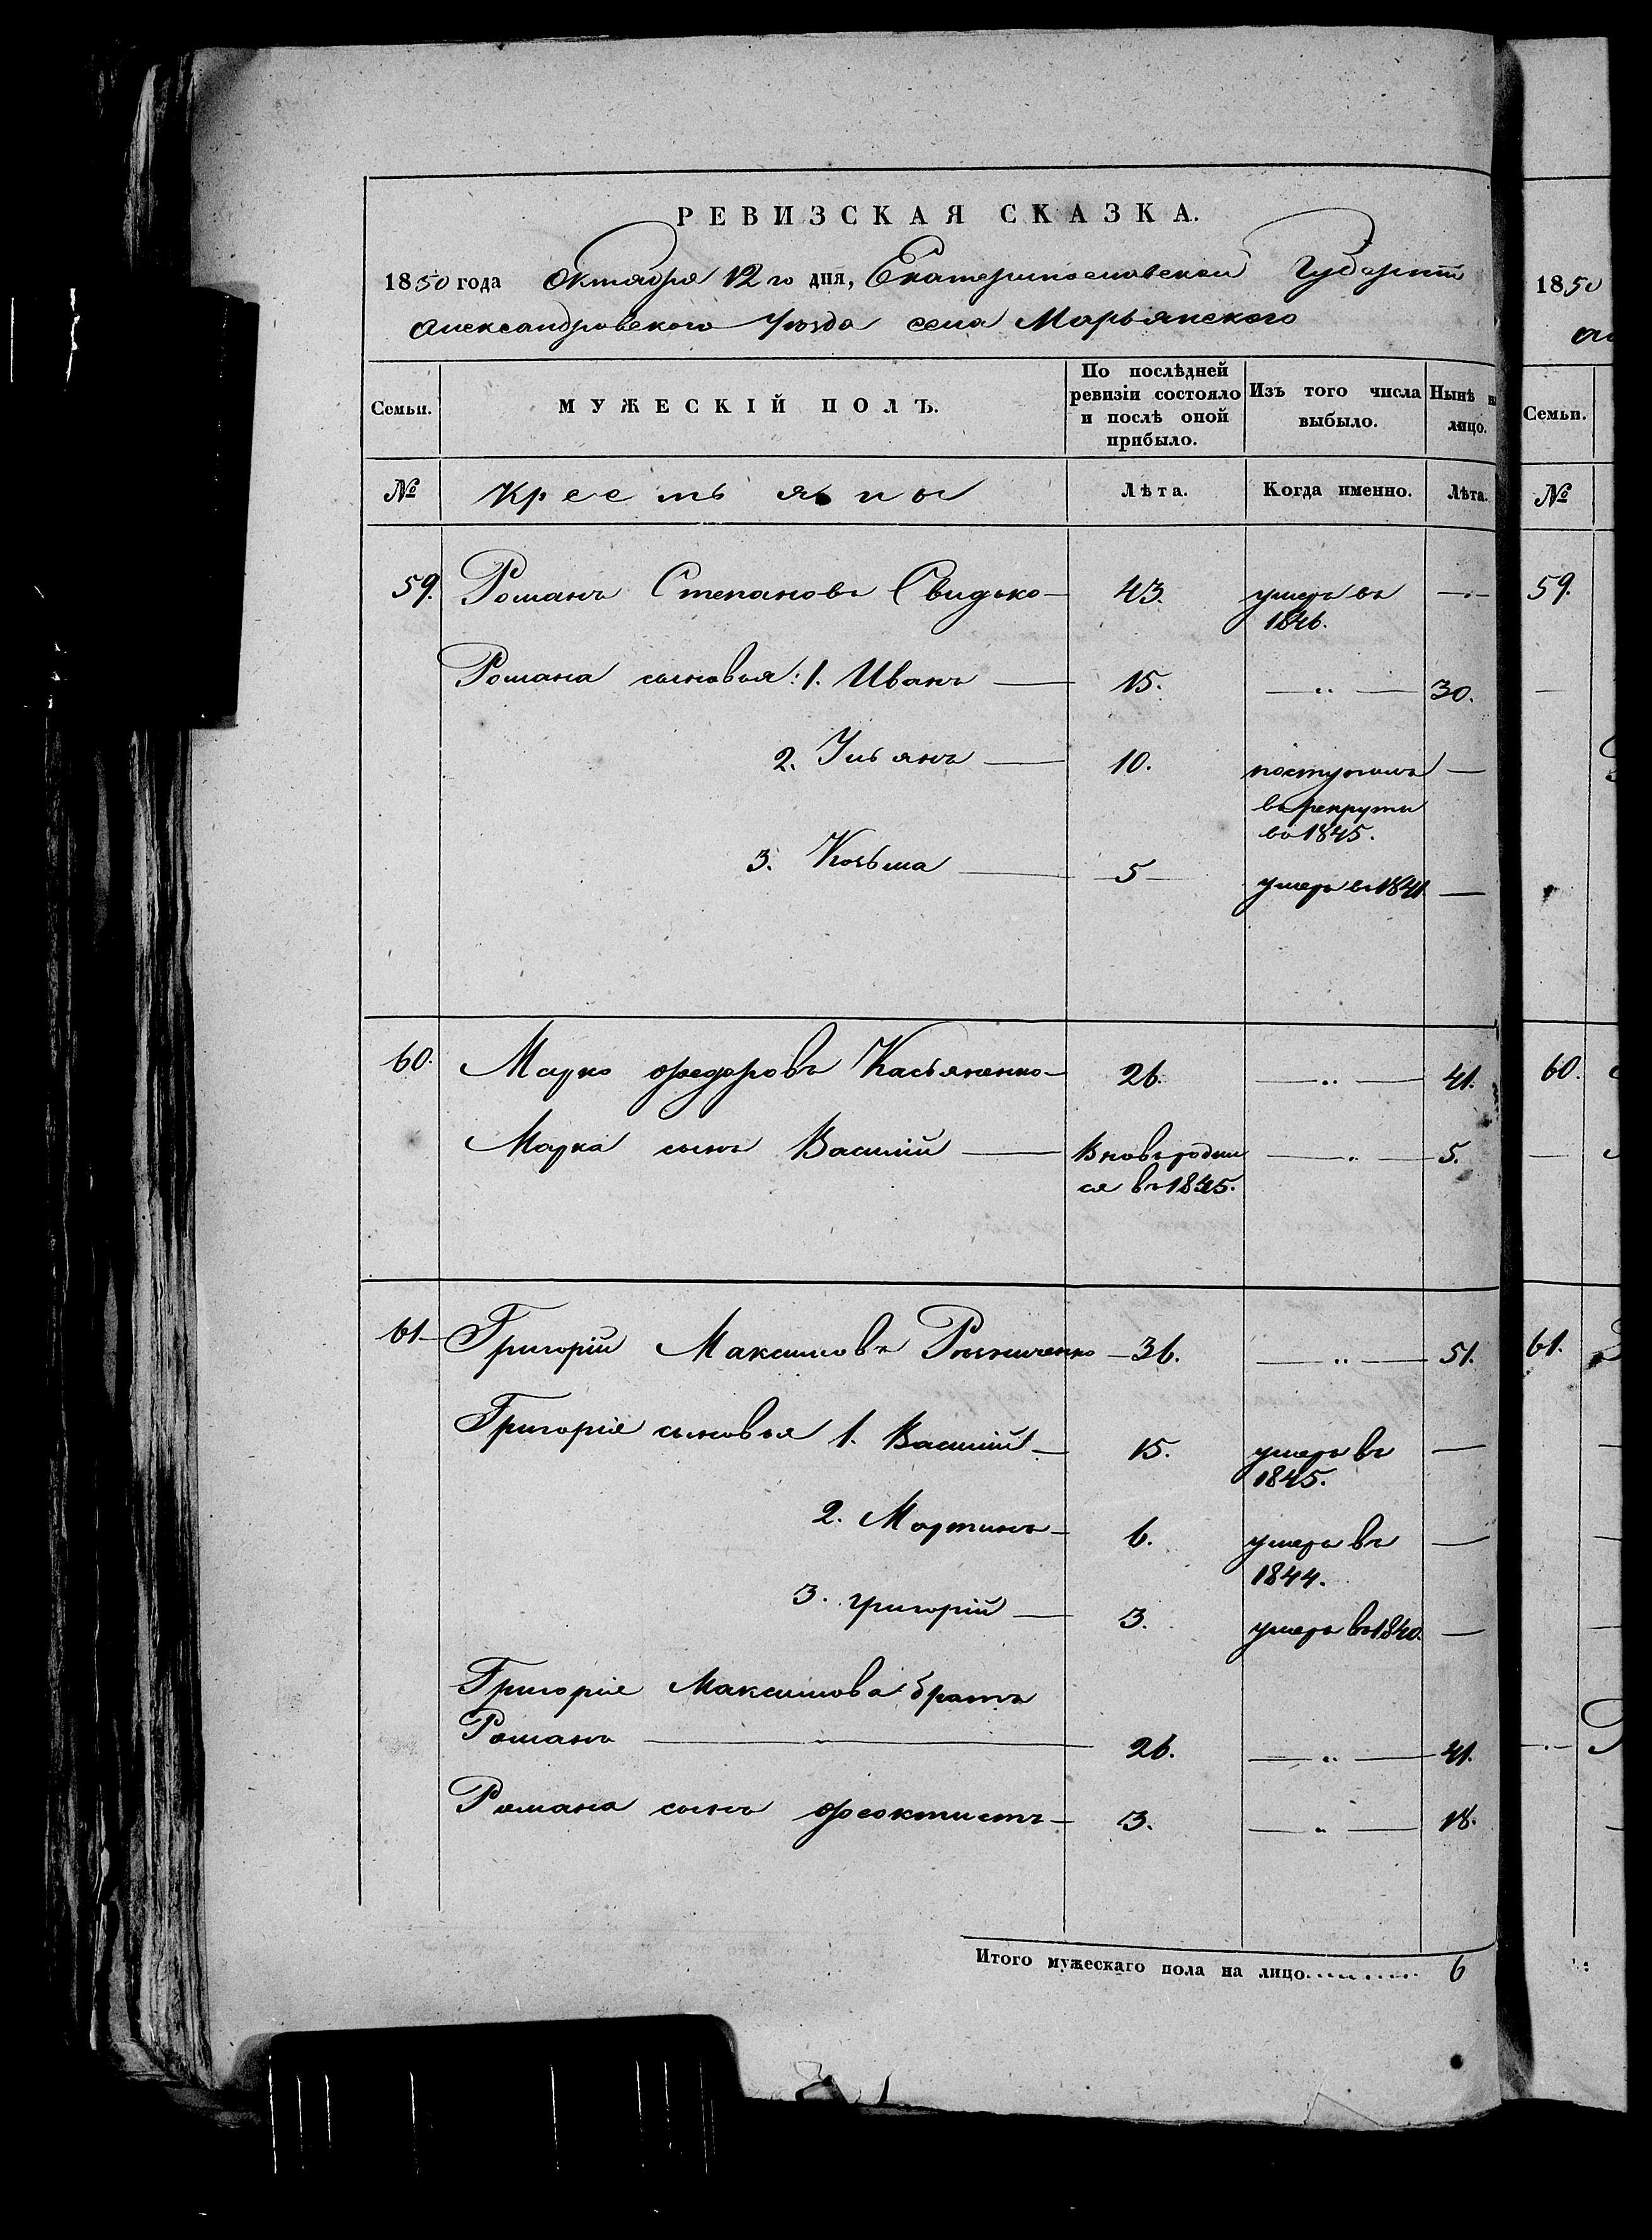 РЕВИЗСКАЯ СКАЗКА.
1850 года Октября 12 го дня, Екатеринославской Губерніи
Александровского Уѣзда села Марьянского
Семьи.
МУЖЕСКІЙ ПОЛЪ.
По послѣдней ревизіи состояло и послѣ оной прибыло.
Изъ того числа выбыло.
Нынѣ на лицо.
№ Крестьяны Лѣта. Когда именно. Лѣта.
59. Романъ Степановъ Свидько — 43. умеръ въ 1846. —
Романа сыновья: 1. Иванъ — 15. — 30.
2. Ульянъ — 10. поступилъ въ рекруты въ 1845. —
3. Козьма — 5 умеръ въ 1841 —
60. Марко Федоровъ Касьяненко — 26. — 41.
Марка сынъ Василій — Вновь родил ся въ 1845. — 5.
61 Григорій Максимовъ — 36. — 51.
Григорія сыновья 1. Василій — 15. умеръ въ 1845. —
2. Мартинъ — 6. умеръ въ 1844. —
3. Григорій — 3. умеръ въ 1840. —
Григорія Максимова братъ
Романъ — 26. — 41.
Романа сынъ Феоктистъ — 3. — 18.
Итого мужескаго пола на лицо.......... 6
1850
Семьи.
№
59.
60.
61.